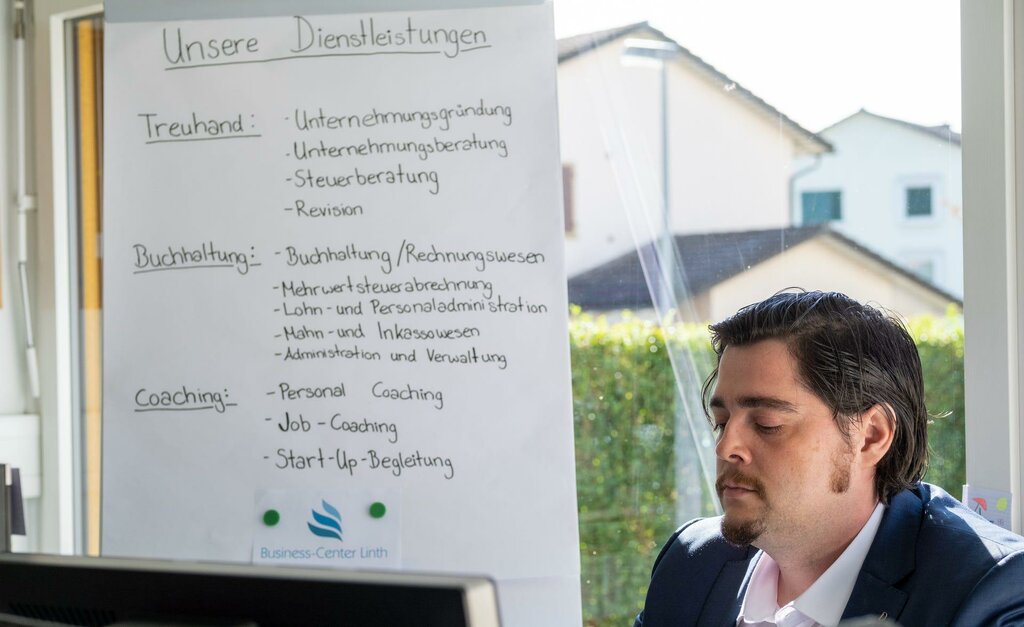 Unsere Dienstleistungen
Treuhand: - Unternehmungsgründung
- Unternehmungsberatung
- Steuerberatung
- Revision
Buchhaltung: - Buchhaltung/Rechnungswesen
- Mehrwertsteuerabrechnung
- Lohn- und Personaladministration
- Mahn- und Inkassowesen
- Administration und Verwaltung
Coaching: - Personal Coaching
- Job-Coaching
- Start-Up-Begleitung
Business-Center Linth